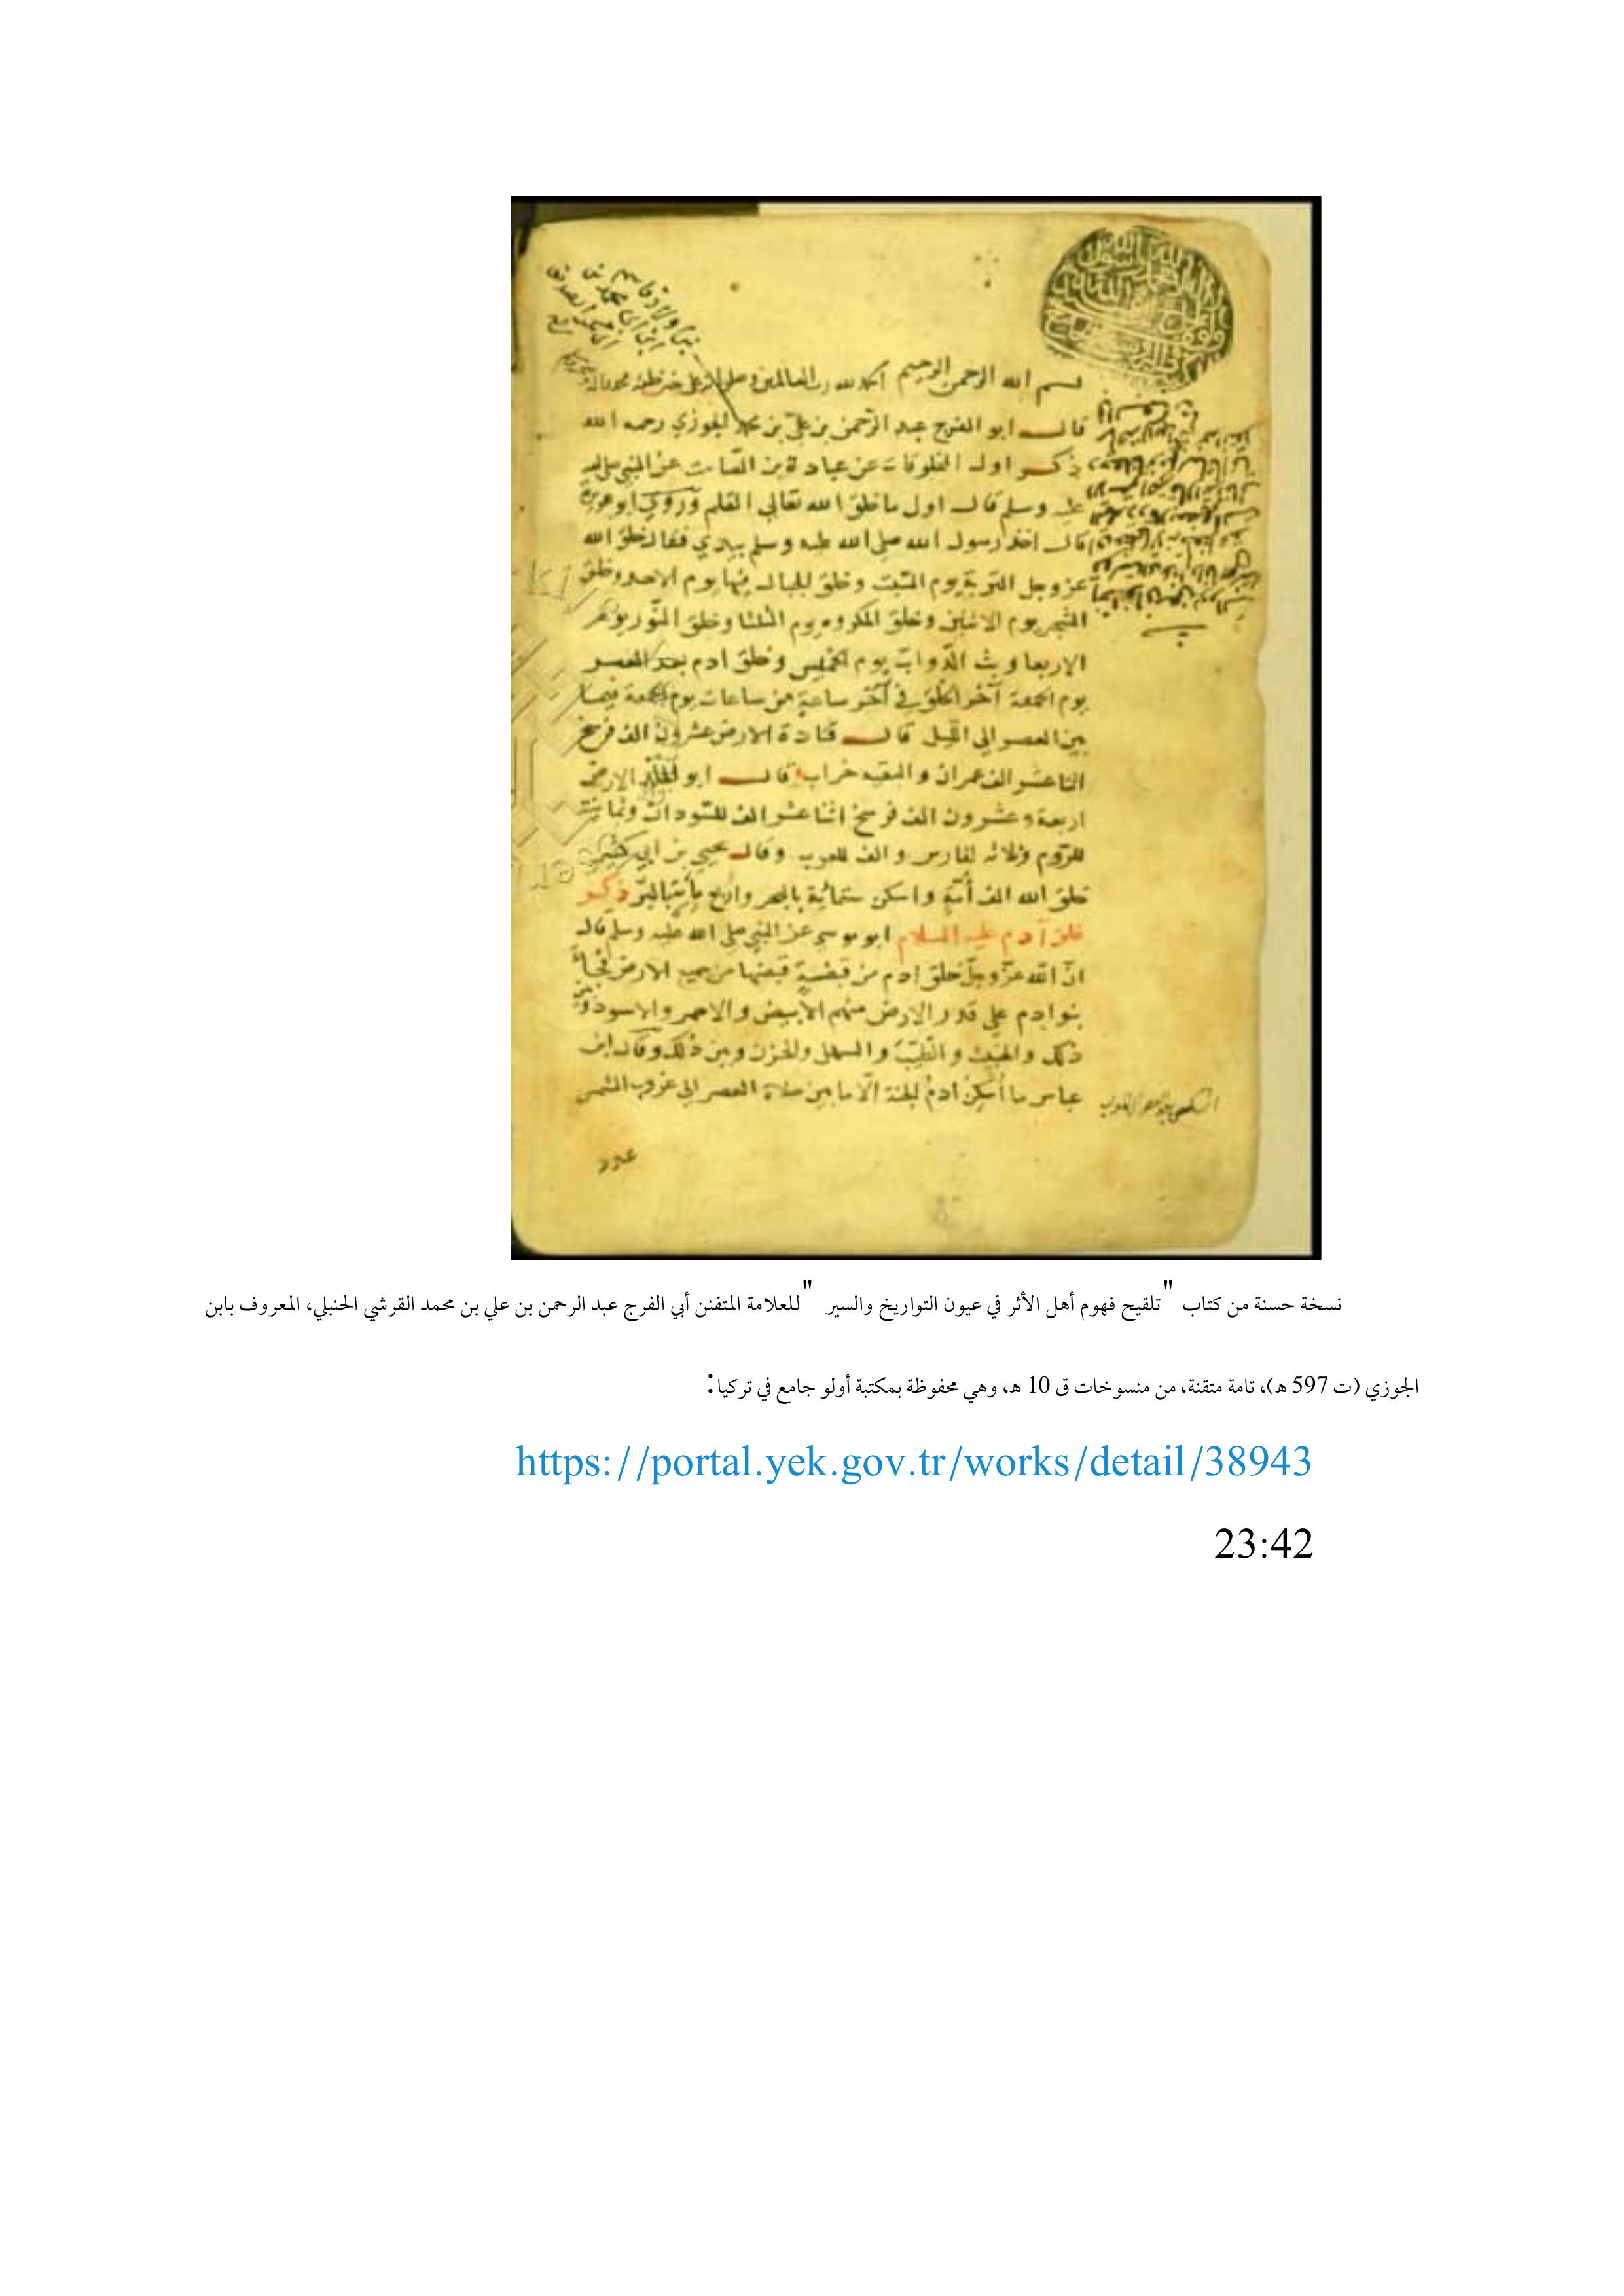 بسم الله الرحمن الرحيم الحمد لله رب العالمين وصلى الله على خير خلقه محمد وآله
قال ابو الفرج عبد الرحمن بن علي بن محمد الجوزي رحمه الله
ذكر اول المخلوقات عن عبادة بن الصامت عن النبي صلى الله
عليه وسلم قال اول ما خلق الله تعالى القلم وروى ابو هريرة
قال اخذ رسول الله صلى الله عليه وسلم بيدي فقال خلق الله
عز وجل التربة يوم السبت وخلق الجبال فيها يوم الاحد وخلق
الشجر يوم الاثنين وخلق المكروه يوم الثلثا وخلق النور يوم
الاربعا وبث الدواب يوم الخميس وخلق ادم بعد العصر
يوم الجمعة آخر الخلق في آخر ساعة من ساعات يوم الجمعة فيما
بين العصر الى الليل قال قتادة الارض عشرون الف فرسخ
اثنا عشر الف عمران والبقيه خراب قال ابو الجلد الارض
اربعة وعشرون الف فرسخ اثنا عشر الف للسودان وثمانية
للروم وثلاثه لفارس والف للعرب وقال يحيى بن ابي كثير
خلق الله الف أمة واسكن ستمائة بالبحر واربع مائة بالبر ذكر
خلق آدم عليه السلام ابو موسى عن النبي صلى الله عليه وسلم قال
ان الله عز وجل خلق ادم من قبضة قبضها من جميع الارض فجاء
بنو ادم على قدر الارض منهم الأبيض والاحمر والاسود وبين
ذلك والخبيث والطيب والسهل والحزن وبين ذلك وقال ابن
عباس ما أسكن ادم الجنة الا ما بين صلاة العصر الى غروب الشمس
نسخة حسنة من كتاب "تلقيح فهوم أهل الأثر في عيون التواريخ والسير "للعلامة المتفنن أبي الفرج عبد الرحمن بن علي بن محمد القرشي الحنبلي، المعروف بابن
الجوزي (ت 597 ه)، تامة متقنة، من منسوخات ق 10 ه، وهي محفوظة بمكتبة أولو جامع في تركيا:
https://portal.yek.gov.tr/works/detail/38943
23:42